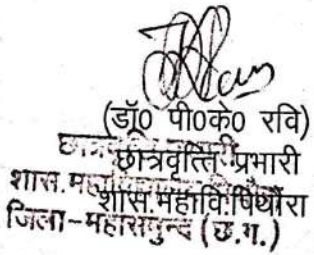 (डॉ0 पी0के0 रवि)
छात्रवृत्ति प्रभारी
शास.महावि.पिथौरा
जिला-महासमुन्द (छ.ग.)